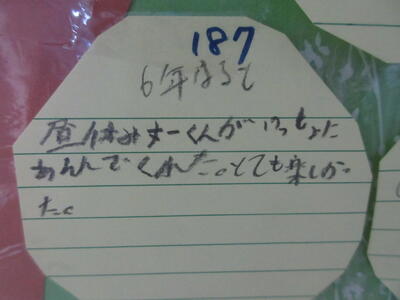 187
6年はると
昼休みすーくんがいっしょに
あそんでくれた。とても楽しかっ
た。